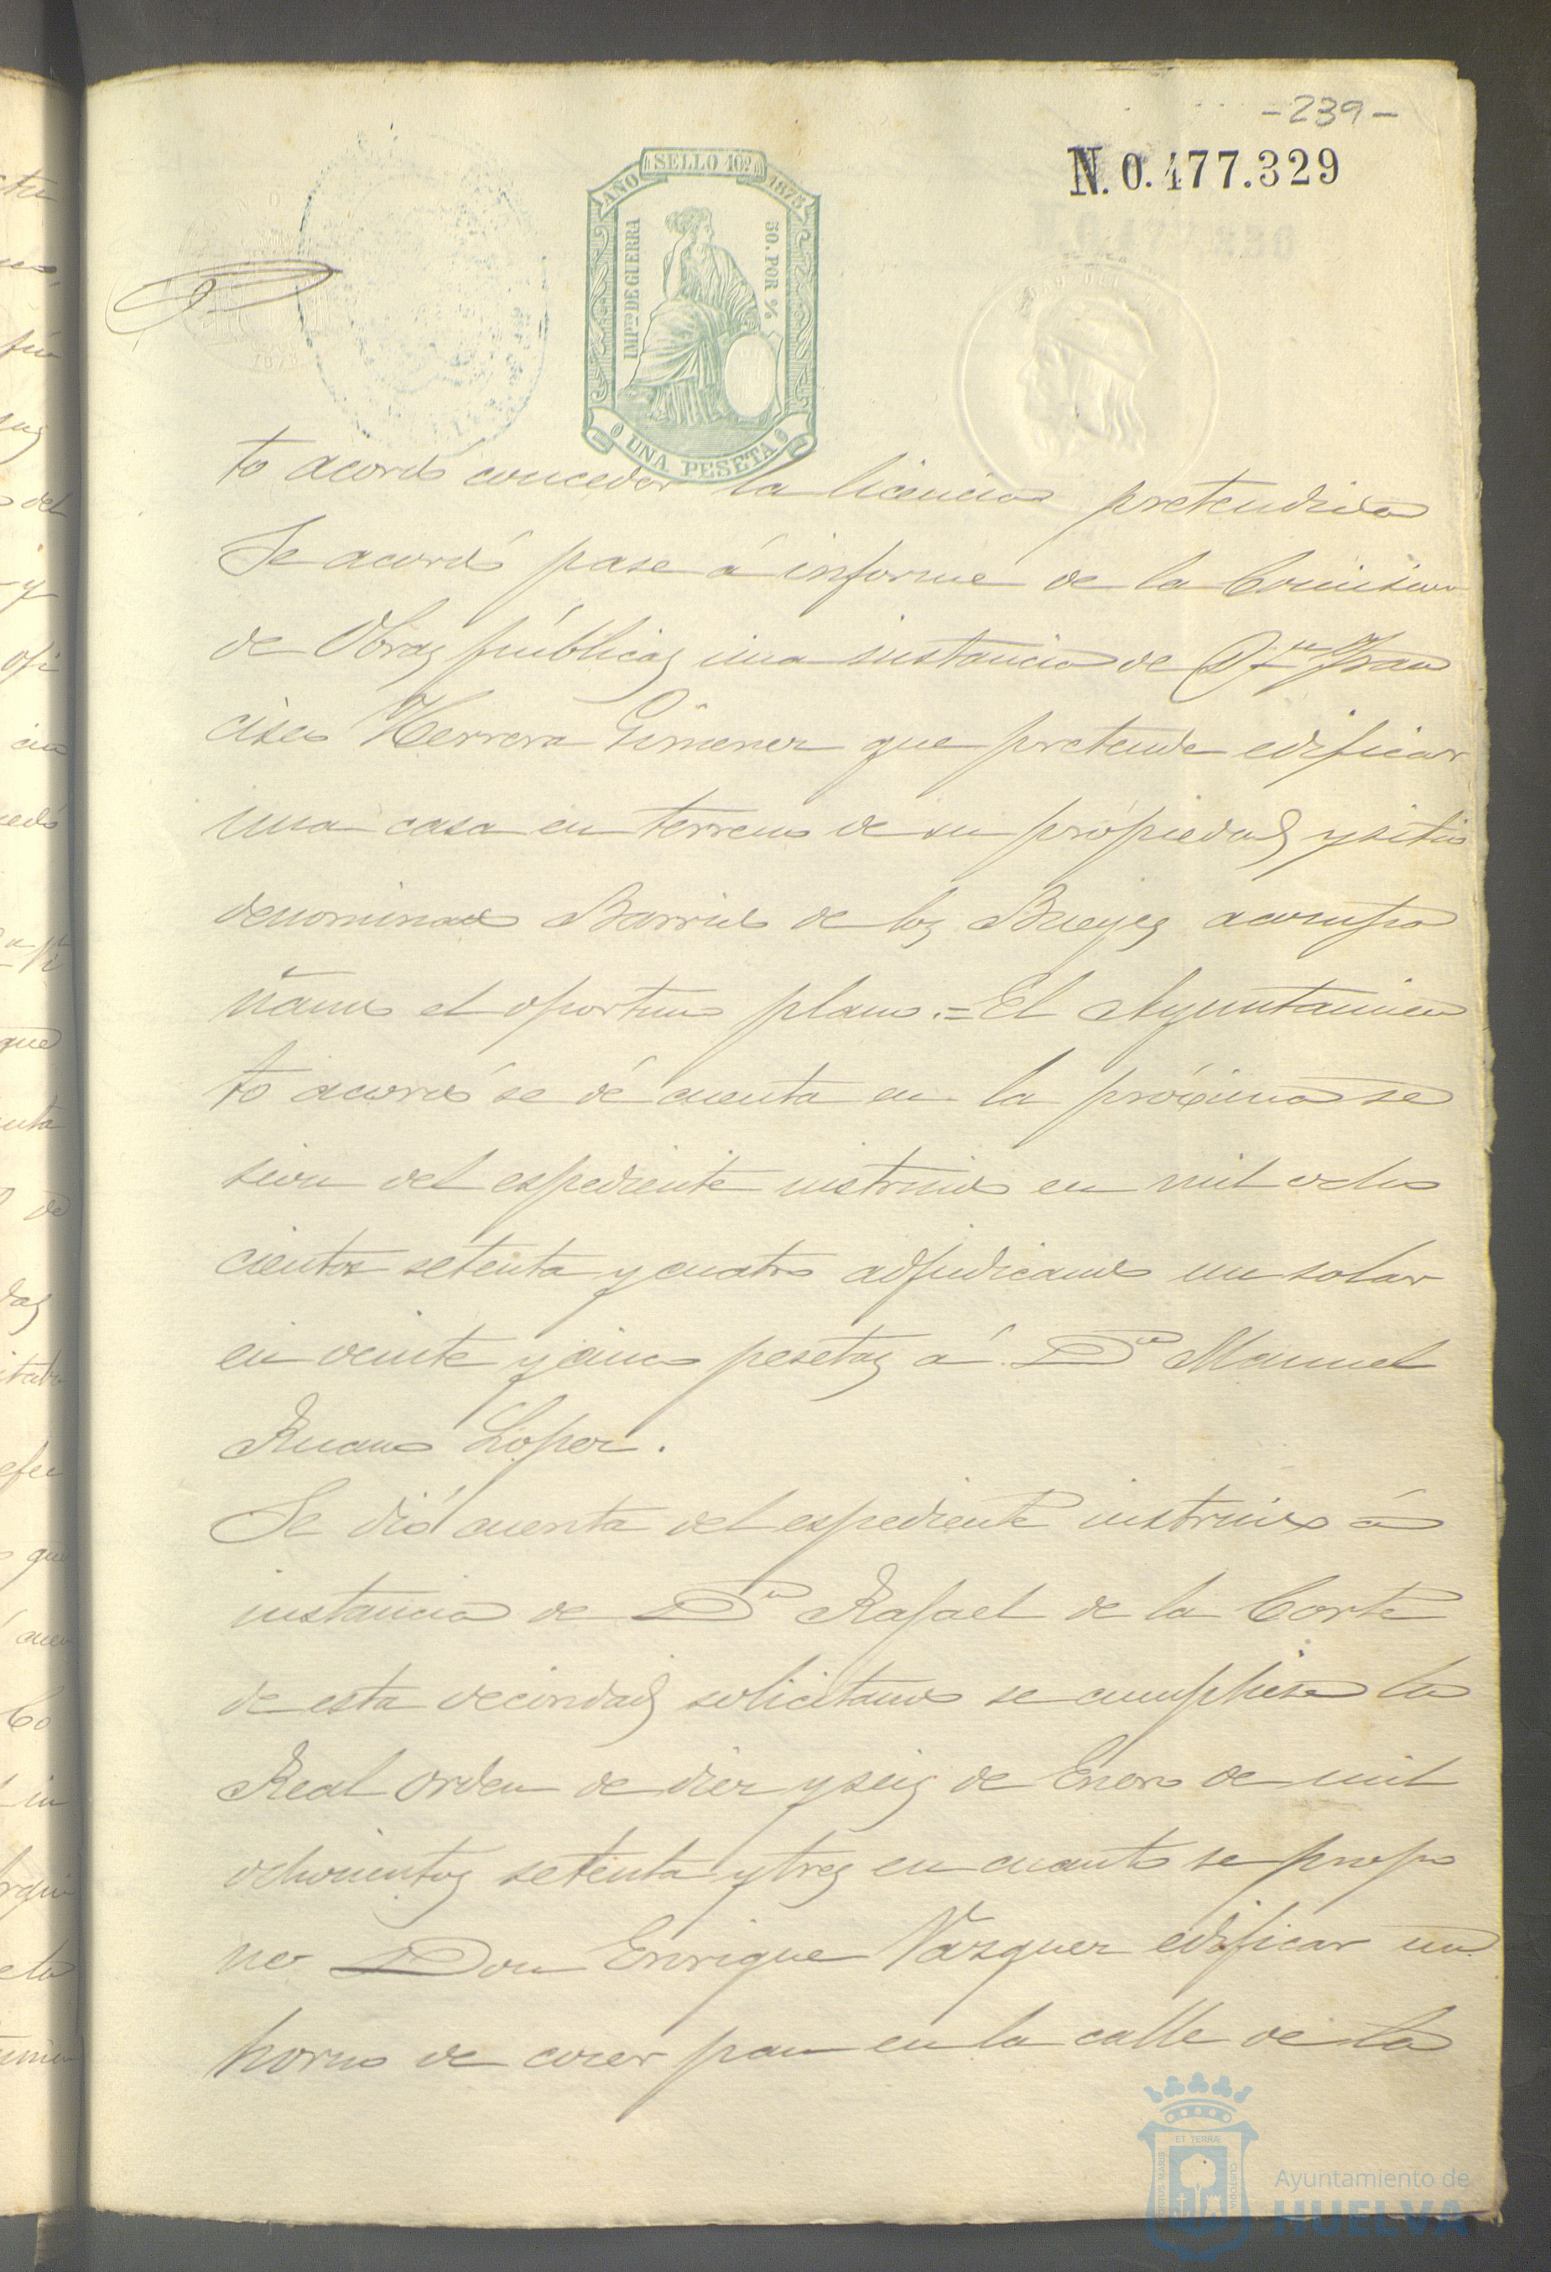 -239-
N.0.477.329
SELLO 10º
AÑO 1878
IMPto DE GUERRA
50. POR %
UNA PESETA
to acordó conceder la licencia pretendida
Se acordó pase á informe de la Comision
de Obras públicas una instancia de Dn Fran
cisco Herrera Gimenez que pretende edificar
una casa en terreno de su propiedad y sitio
denominado Barrio de los Bueyes acompa
ñando el oportuno plano.=El Ayuntamien
to acordó se dé cuenta en la próxima se
sion del espediente instruido en mil ocho
cientos setenta y cuatro adjudicando un solar
en veinte y cinco pesetas á Dn Manuel
Ruano Lopez.
Se dió cuenta del espediente instruido á
instancia de Dn Rafael de la Corte
de esta vecindad solicitando se cumpliese la
Real orden de diez y seis de Enero de mil
ochocientos setenta y tres en cuanto se propo
ne Don Enrique Vazquez edificar un
horno de cocer pan en la calle de la
Ayuntamiento de
HUELVA